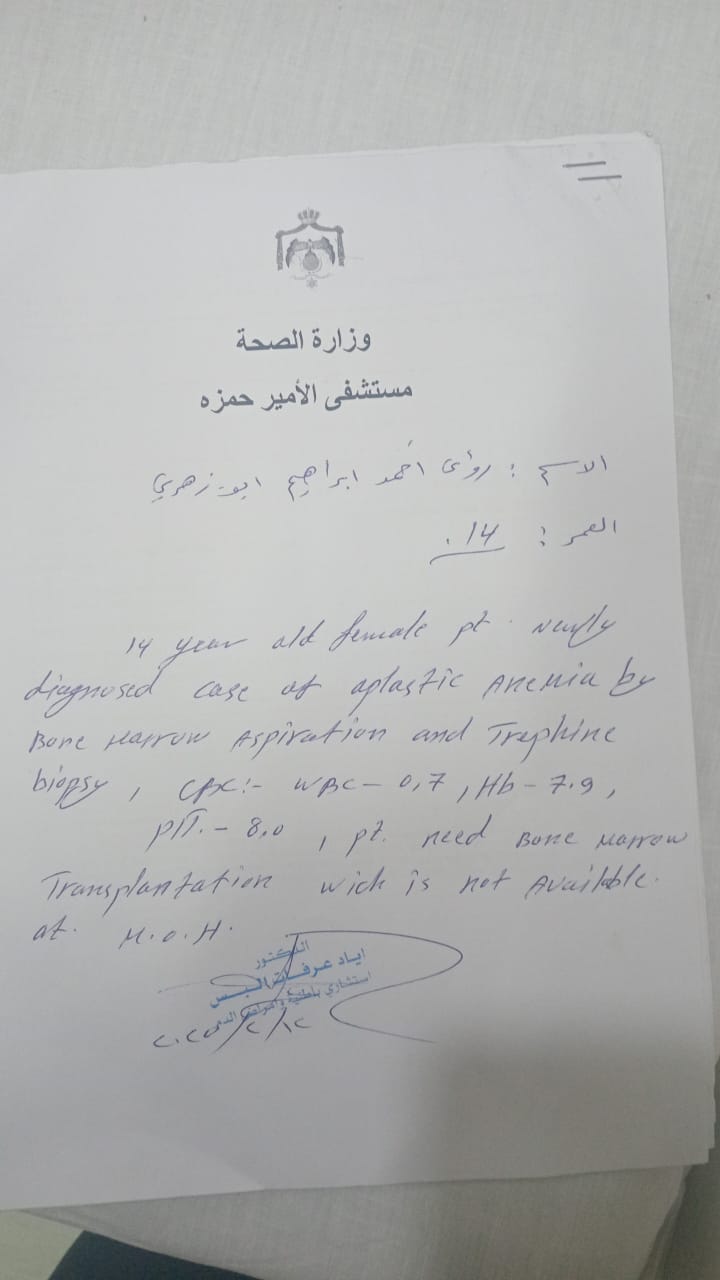 وزارة الصحة
مستشفى الأمير حمزه
الاسم : رؤى أحمد ابراهيم ابو زهري
العمر : 14 .
14 year old female pt. Newly
diagnosed case of aplastic Anemia by
Bone Marrow Aspiration and Trephine
biopsy , CBC:- WBC - 0,7 , Hb - 7.9 ,
plT. - 8.0 , pt. need Bone Marrow
Transplantation wich is not Available.
at. M.O.H.
الدكتور
اياد عرفات البس
استشاري باطنية وامراض الدم